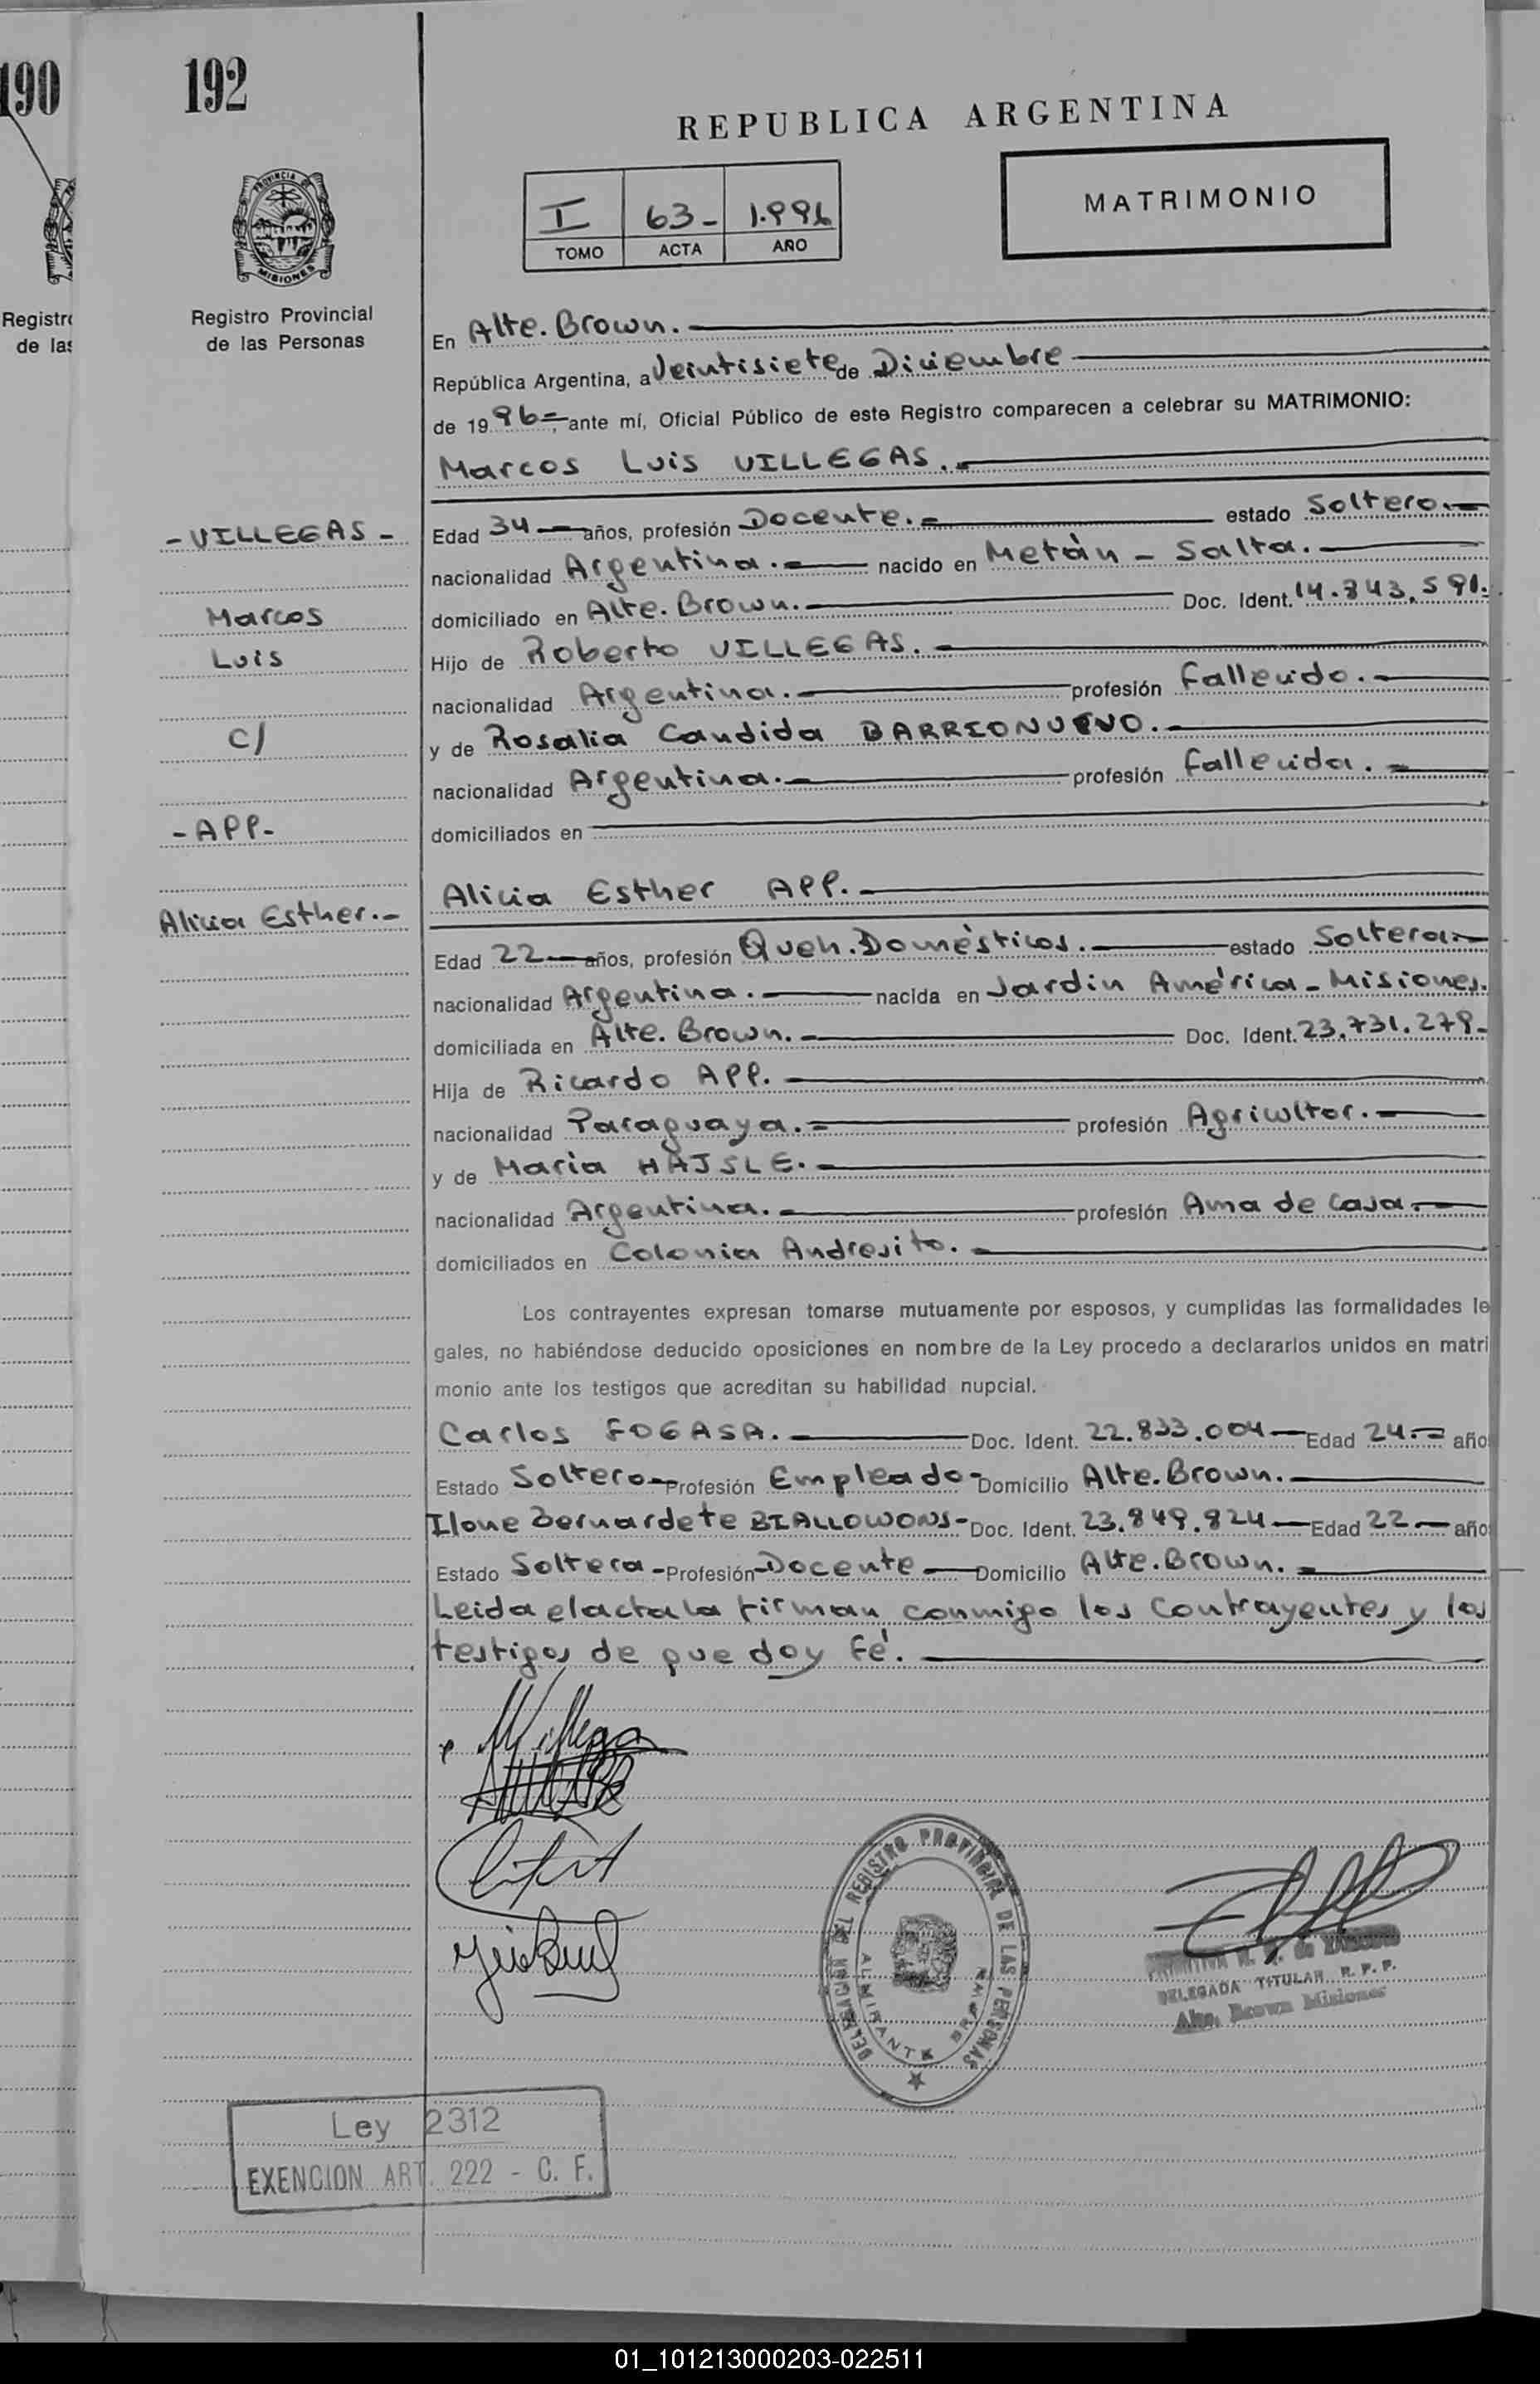 190
192
REPUBLICA ARGENTINA
I 63- 1.996
TOMO ACTA AÑO
MATRIMONIO
PROVINCIA DE
MISIONES
Registro Provincial
de las Personas
Registro
de las
En Alte. Brown.
República Argentina, a Veintisiete de Diciembre
de 19 96=, ante mí, Oficial Público de este Registro comparecen a celebrar su MATRIMONIO:
Marcos Luis VILLEGAS.
- VILLEGAS -
Marcos
Luis
C/
-APP-
Alicia Esther.-
Edad 34 años, profesión Docente. estado Soltero.
nacionalidad Argentina. nacido en Metán - Salta.
domiciliado en Alte. Brown. Doc. Ident. 14.843.591.
Hijo de Roberto VILLEGAS.
nacionalidad Argentina. profesión Fallecido.
y de Rosalia Candida BARRIONUEVO.
nacionalidad Argentina. profesión Fallecida.
domiciliados en
Alicia Esther APP.
Edad 22 años, profesión Queh. Domésticos. estado Soltera
nacionalidad Argentina. nacida en Jardin América - Misiones.
domiciliada en Alte. Brown. Doc. Ident. 23.731.279-
Hija de Ricardo APP.
nacionalidad Paraguaya. profesión Agricultor.
y de Maria HAJSLE.
nacionalidad Argentina. profesión Ama de casa
domiciliados en Colonia Andresito.
Los contrayentes expresan tomarse mutuamente por esposos, y cumplidas las formalidades le
gales, no habiéndose deducido oposiciones en nombre de la Ley procedo a declararlos unidos en matri
monio ante los testigos que acreditan su habilidad nupcial.
Carlos FOGASA. Doc. Ident. 22.833.004 Edad 24. año
Estado Soltero Profesión Empleado Domicilio Alte. Brown.
Ilone Bernardete BIALLOWONS- Doc. Ident. 23.849.824 Edad 22 año
Estado Soltera Profesión Docente Domicilio Alte. Brown.
Leida el acta la firman conmigo los contrayentes y los
testigos de que doy fé.
DELEGACION DEL REGISTRO PROVINCIAL DE LAS PERSONAS
ALMIRANTE BROWN
DELEGADA TITULAR R. P. P.
Alte. Brown Misiones
Ley 2312
EXENCION ART. 222 - C. F.
01_101213000203-022511